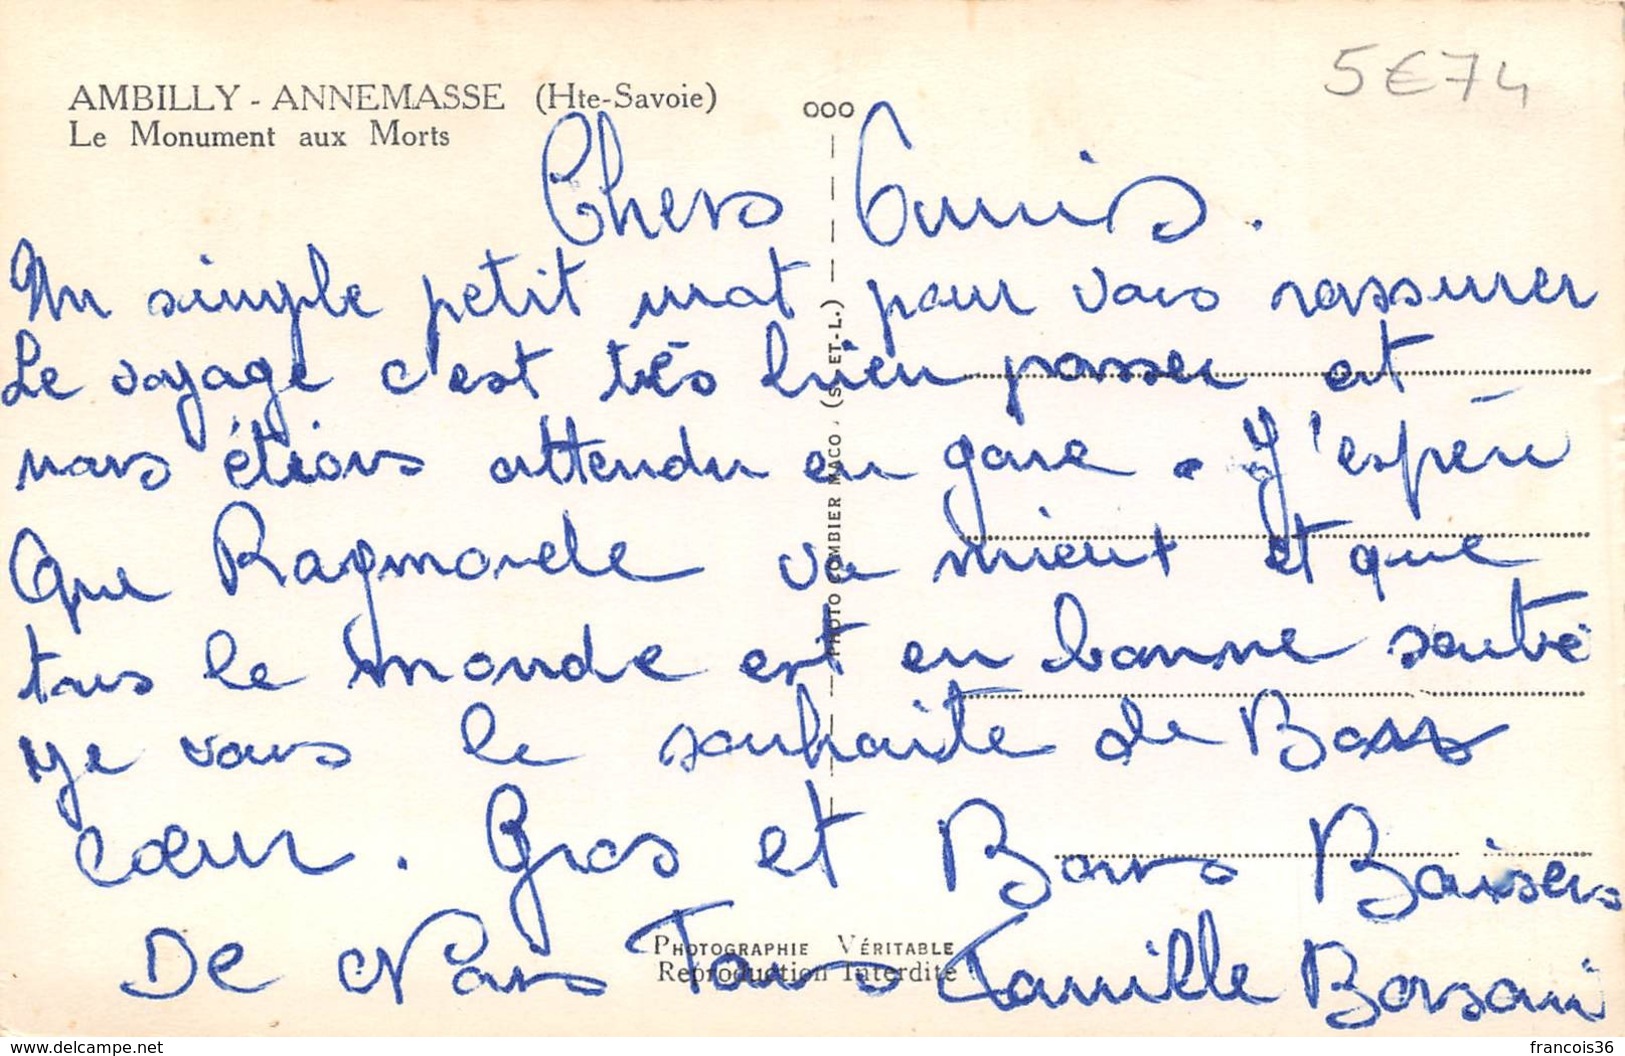 AMBILLY - ANNEMASSE (Hte-Savoie)
Le Monument aux Morts
5€74
000
Chers Amis.
Un simple petit mot pour vous rassurer
Le voyage c'est très bien passer et
nous étions attendu en gare. J'espère
Que Raymonde va mieux et que
tous le monde est en bonne santé
je vous le souhaite de Bons
cœur. Gros et Bons Baisers
De Nous Tous Famille Borsani
PHOTO COMBIER MACO. (S.-ET-L.)
PHOTOGRAPHIE VÉRITABLE
Reproduction Interdite
francois36
delcampe.com